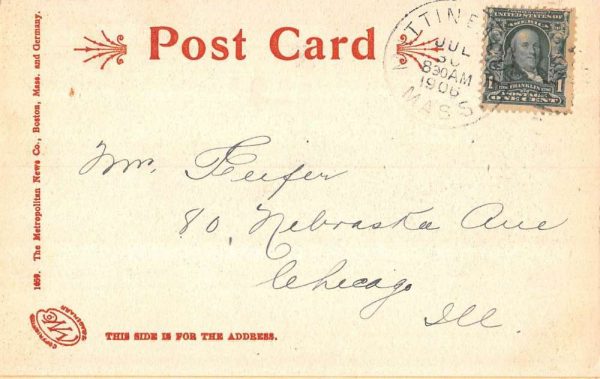 Post Card
JUL
30
830AM
1906
MASS
UNITED STATES OF AMERICA
FRANKLIN
POSTAGE
1 1
ONE CENT
Mr. Feifer
80, Nebraska Ave
Chicago
Ill.
1659. The Metropolitan News Co., Boston, Mass. and Germany.
THIS SIDE IS FOR THE ADDRESS.